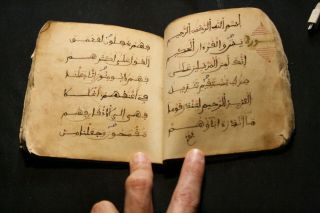 بسم الله الرحمن الرحيم
يس والقرءان الحكيم
إنك لمن المرسلين على
صراط مستقيم تنزيل
العزيز الرحيم لتنذر قوما
ما أنذر ءاباؤهم
فهم غفلون لقد حق
القول على أكثرهم
فهم لا يؤمنون إنا جعلنا
في أعنقهم أغللا
فهي إلى الأذقان فهم
مقمحون وجعلنا من